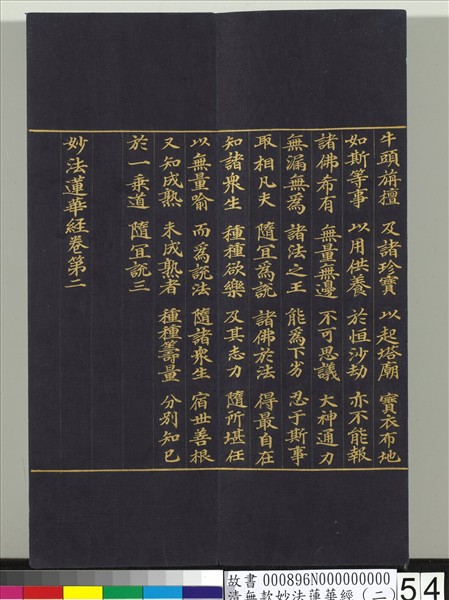 牛頭旃檀　及諸珍寶　以起塔廟　寶衣布地
如斯等事　以用供養　於恒沙劫　亦不能報
諸佛希有　無量無邊　不可思議　大神通力
無漏無為　諸法之王　能為下劣　忍于斯事
取相凡夫　隨冝為說　諸佛於法　得最自在
知諸衆生　種種欲樂　及其志力　隨所堪任
以無量喻　而為說法　隨諸衆生　宿世善根
又知成熟　未成熟者　種種籌量　分別知已
於一乗道　隨冝說三
妙法蓮華經卷第二
故書 000896N000000000
清無款妙法蓮華經(二)
54